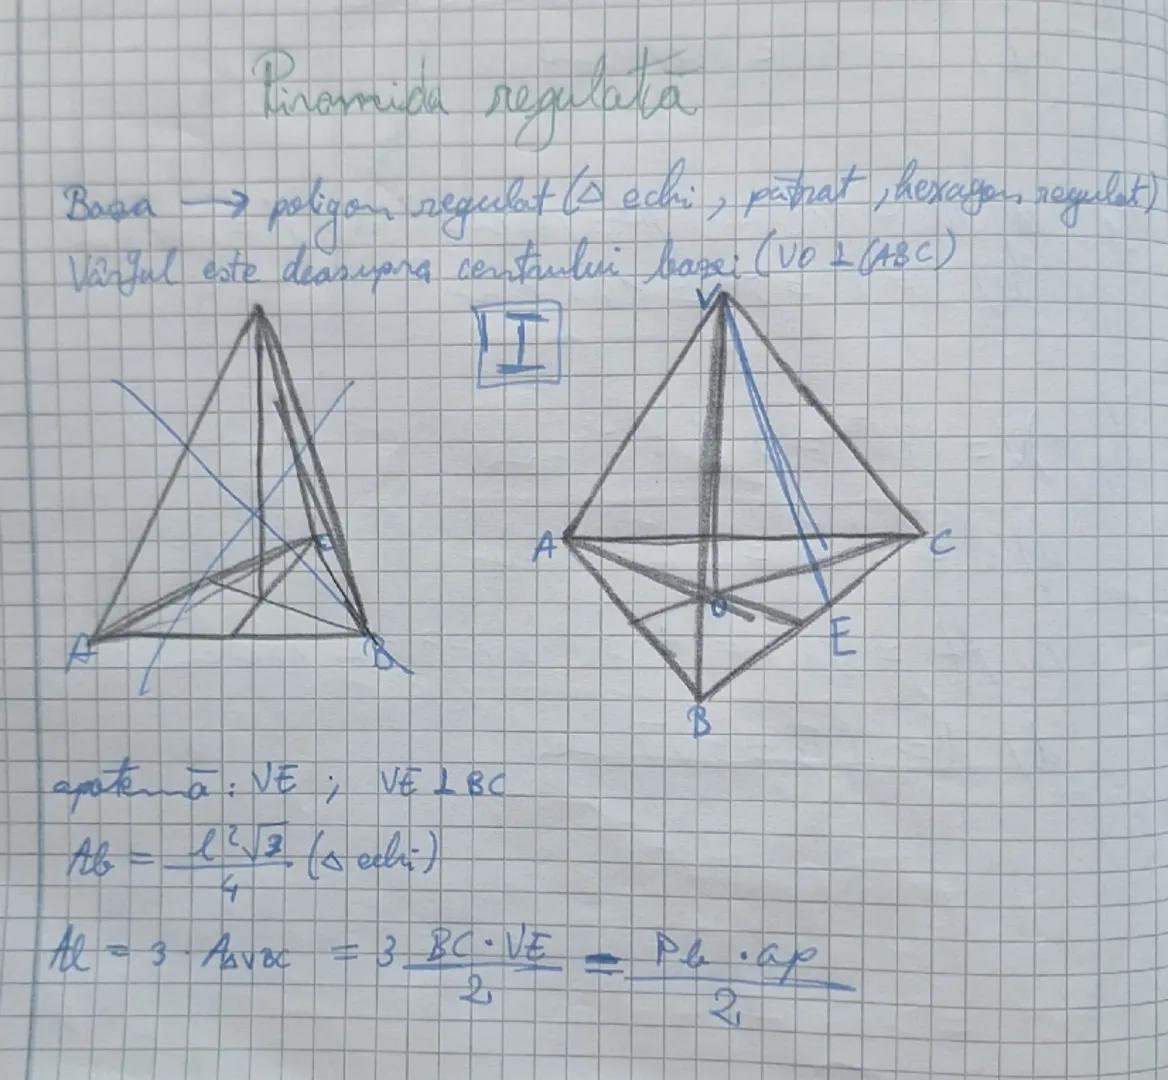 Piramida regulată
Baza → poligon regulat (△ echi, pătrat, hexagon regulat)
Vârful este deasupra centrului bazei (VO ⊥ (ABC)
I
V
A
C
O
E
B
E
A
B
apotemă: VE ; VE ⊥ BC
Ab = l²√3/4 (△ echi)
Al = 3 · A△VBC = 3 BC · VE/2 = Pb · ap/2